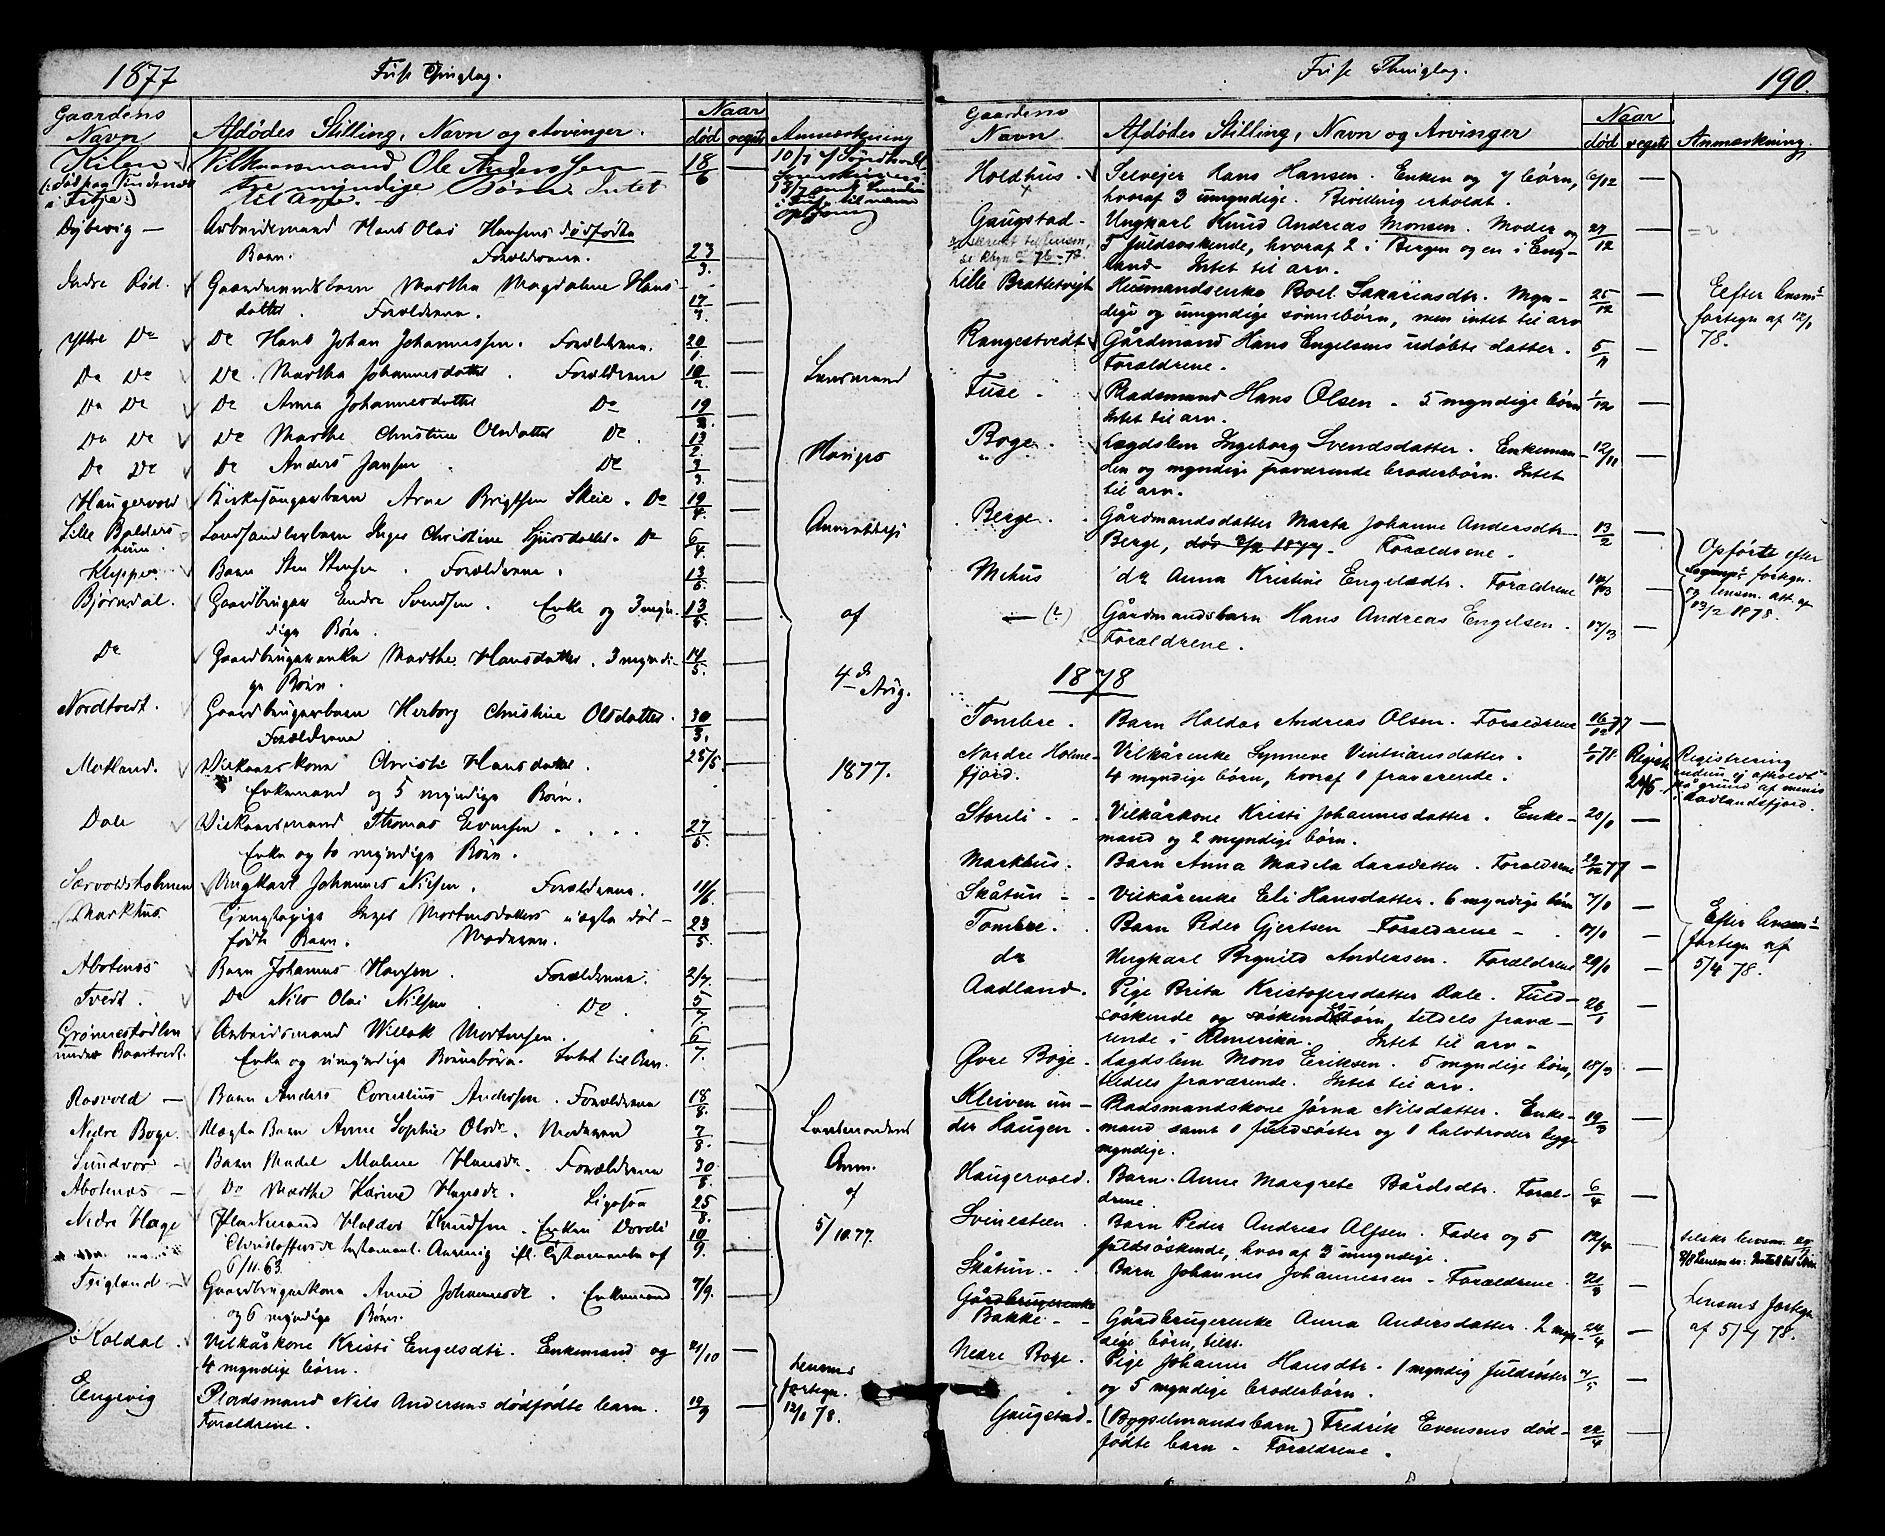 1877
Fuse Thinglag.
Gaardens Navn
Afdødes Stilling, Navn og Arvinger.
Naar
død
regist
Anmærkning
Kilen
Vilkaarsmand Ole Anderssen
18/6
tre myndige Børn Intet
til Arv.
Dybevig —
Arbeidsmand Hans Olai Hansens dødfødte
Barn. Forældrene.
23/3.
Indre Rød.
Gaardmandsbarn Martha Magdalene Hans
datter. Forældrene.
ystre Do
Do Hans Johan Johannessen. Forældrene.
20/1.
Do Do
Do Martha Johannesdatter. Forældrene
10/2.
Do Do
Do Anna Johannesdatter Do
Do Do
Do Marthe Christine Olsdatter Do.
Do Do
Do Anders Jansen Do
Haugervold
Kirkesangerbarn Arne Brigtsen Skeie. Do
19/4
Lille Bolders
heim.
Landhandlerbarn Inger Christine Sjursdatter. Do
6/4.
Klyppe.
Barn Sten Stensen. Forældrene.
13/5
Bjørndal.
Gaardbruger Endre Svendsen. Enke og 3 myn-
dige Børn.
13/5.
Do
Gaardbrugerenke Marthe Hansdatter. 3 myndi-
ge Børn.
14/5.
Lensmand
Anmeldelse
af
4de Aug.
1877.
Nordtvedt.
Gaardbrugerbarn Herborg Christine Olsdatter.
Forældrene
30/3.
Motland.
Vilkaarskone Christi Hansdatter.
Enkemand og 5 myndige Børn.
25/5.
Dale
Vilkaarsmand Thomas Evensen
Enke og to myndige Børn.
27/5.
Sævoldsholmen
Ungkarl Johannes Nilsen. Forældrene.
11/6.
Markhus
Tjenestepige Inger Mortensdatters uægte død-
fødte Barn. Moderen.
23/5.
Abotsnæs
Barn Johannes Hansen. Forældrene
2/7.
Tvedt.
Do Nils Olai Nilsen Do
5/7
under Baartvedt.
Arbeidsmand Willak Mortensen.
Enke og umyndige Børnebørn. Intet til Arv.
6/7.
Rosvold —
Barn Anders Cornelius Anderssen. Forældrene
18/8.
Nedre Boge.
Uægte Barn Anne Sophie Olsdr. Moderen
7/8.
Sundvor —
Barn Madel Malene Hansdr. Forældrene
Abotsnæs —
Do Marthe Karine Hansdr. Ligesaa
25/8.
Nedre Hage
Haldor Knudsen. Enken Dordi
Christoffersdr testament. Arving ifl. Testamente af
6/11.63.
10/9.
Lensmandens
Anm.
af
5/10.77.
Teigland —
Gaardbrugerkone Anne Johannesdr. Enkemand
og 6 myndige Børn.
7/9.
Koldal.
Vilkårkone Kristi Engelsdtr. Enkemand og
4 myndige børn.
21/10
Eengevig
Pladsmand Nils Andersens dødfødte barn.
Forældrene.
19/9
Lensms
fortegn.
12/1 78.
Fuse Thinglag.
190.
Gaardens
Navn
Afdødes Stilling, Navn og Arvinger
Naar
død
regist
Anmærkning.
Holdhus.
Selvejer Hans Hansen. Enken og 7 børn,
hvoraf 3 umyndige. Bevilling erholdt.
Gaugstad.
Ungkarl Knud Andreas Monsen. Moder og
5 fuldsøskende, hvoraf 2 i Bergen og en i Eng-
land — Intet til arv.
27/12
Lille Brattetvejt
Husmandsenke Boel Sakariasdtr. Myn-
dige og umyndige sønnebørn, men intet til arv
25/12
Efter lensms
fortegn af 12/1
78.
Rangestvedt
Gårdmand Hans Engelsens udøbte datter.
Forældrene.
5/11
Fuse.
Pladsmand Hans Olsen. 5 myndige børn
Intet til arv.
1/12
Boge.
Lægdslem Ingeborg Svendsdatter. Enkeman-
den og myndige fraværende broderbørn. Intet
til arv.
12/11
Berge.
Gårdmandsdatter Marta Johanne Andersdtr
Berge, Forældrene.
13/2
Mehus
do Anna Kristine Engelsdtr. Forældrene
— (?)
Gårdmandsbarn Hans Andreas Engelsen.
Forældrene.
Opførte efter
fortegn.
og lensm. att. af
13/2 1878.
1878
Tombre.
Barn Haldor Andreas Olsen. Forældrene
Nordre Holme-
fjord.
Vilkårenke Synneve Vintsiansdatter.
4 myndige børn, hvoraf 1 fraværende.
Registrering
endnu ej afholdt
på grund af
i Aadlandsfjord.
Storeli
Vilkårkone Kristi Johannesdatter. Enke-
mand og 2 myndige børn.
Markhus.
Barn Anna Madela Larsdatter. Forældrene
Skåtun
Vilkårenke Eli Hansdatter. 6 myndige børn
Tombre.
Barn Peder Gjertsen Forældrene
do
Ungkarl Brynild Andersen. Forældrene
Aadland.
Pige Brita Kristofersdatter Dale. Fuld-
søskende og søskendebørn, tildels fravæ-
rende i Amerika. Intet til arv.
26/1
Efter lensms
fortegn af
5/4 78.
Øvre Boge.
Lægdslem Mons Eriksen. 5 myndige børn,
tildels fraværende. Intet til arv.
18/3
Kleiven un-
der Haugen.
Pladsmandskone Jørna Nilsdatter. Enke-
mand samt 1 fuldsøster og 1 halvbroder begge
myndige.
19/3
Haugervold.
Barn Anne Margrete Bårdsdtr. Foræl-
drene.
6/4
Svinesteen.
Barn Peder Andreas Olsen. Fader og 5
fuldsøskende, hvoraf 3 umyndige.
12/4
Skåtun.
Barn Johannes Johannessen. Forældrene.
Gårdbrugerenke
Bakke.
Gårdbrugerenke Anna Andersdatter. 2 myn-
dige børn, tilst.
24/4
Lensms fortegn
af 5/7 78.
Nedre Boge.
Pige Johanne Hansdtr. 1 myndig fuldsøster
og 5 myndige broderbørn.
Gaugstad.
(Bygselmandsbarn) Fredrik Evensens død-
fødte barn. Forældrene.
22/4